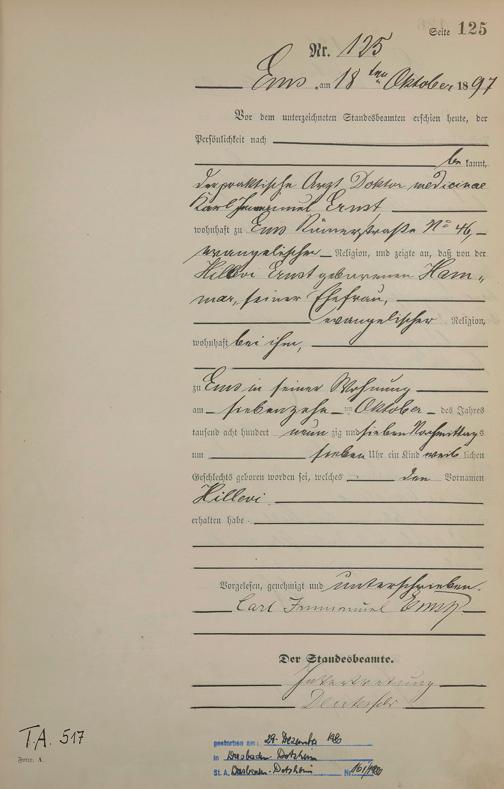 Seite 125
Nr. 125
Ems am 18ten Oktober 1897
Vor dem unterzeichneten Standesbeamten erschien heute, der
Persönlichkeit nach
be kannt,
der praktische Arzt Doktor medicinae
Karl Immanuel Ernst,
wohnhaft zu Ems Römerstraße No 46,
evangelischer Religion, und zeigte an, daß von der
Hillevi Ernst geborenen Ham-
mar, seiner Ehefrau,
evangelischer Religion,
wohnhaft bei ihm,
zu Ems in seiner Wohnung
am siebenzehn ten Oktober des Jahres
tausend acht hundert neun zig und sieben Vormittags
um sieben Uhr ein Kind weib lichen
Geschlechts geboren worden sei, welches den Vornamen
Hillevi
erhalten habe.
Vorgelesen, genehmigt und unterschrieben.
Carl Immanuel Ernst
Der Standesbeamte.
In Vertretung
T.A. 517
Form. A.
gestorben am: 29. Dezember
in Wiesbaden-Dotzheim
St. A. Wiesbaden-Dotzheim Nr.